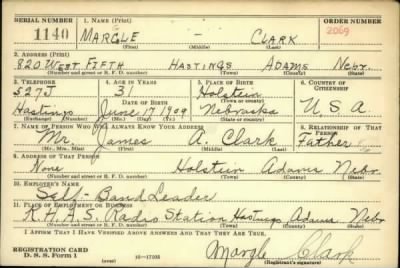 SERIAL NUMBER 1. NAME (Print) ORDER NUMBER
1140 MARGLE CLARK 2069
(First) (Middle) (Last)
2. ADDRESS (Print)
820 WEST FIFTH HASTINGS ADAMS NEBR.
(Number and street or R. F. D. number) (Town) (County) (State)
3. TELEPHONE 4. AGE IN YEARS 5. PLACE OF BIRTH 6. COUNTRY OF CITIZENSHIP
527J 31 Holstein
DATE OF BIRTH (Town or county)
Hastings June 17 1909 Nebraska U.S.A.
(Exchange) (Number) (Mo.) (Day) (Yr.) (State or country)
7. NAME OF PERSON WHO WILL ALWAYS KNOW YOUR ADDRESS 8. RELATIONSHIP OF THAT PERSON
Mr. James A. Clark Father
(Mr., Mrs., Miss) (First) (Middle) (Last)
9. ADDRESS OF THAT PERSON
None Holstein Adams Nebr
(Number and street or R. F. D. number) (Town) (County) (State)
10. EMPLOYER'S NAME
Self - Band Leader
11. PLACE OF EMPLOYMENT OR BUSINESS
K.H.A.S. Radio Station Hastings Adams Nebr
(Number and street or R. F. D. number) (Town) (County) (State)
I AFFIRM THAT I HAVE VERIFIED ABOVE ANSWERS AND THAT THEY ARE TRUE.
REGISTRATION CARD
D. S. S. Form 1 16—17105 Margle Clark
(over) (Registrant's signature)